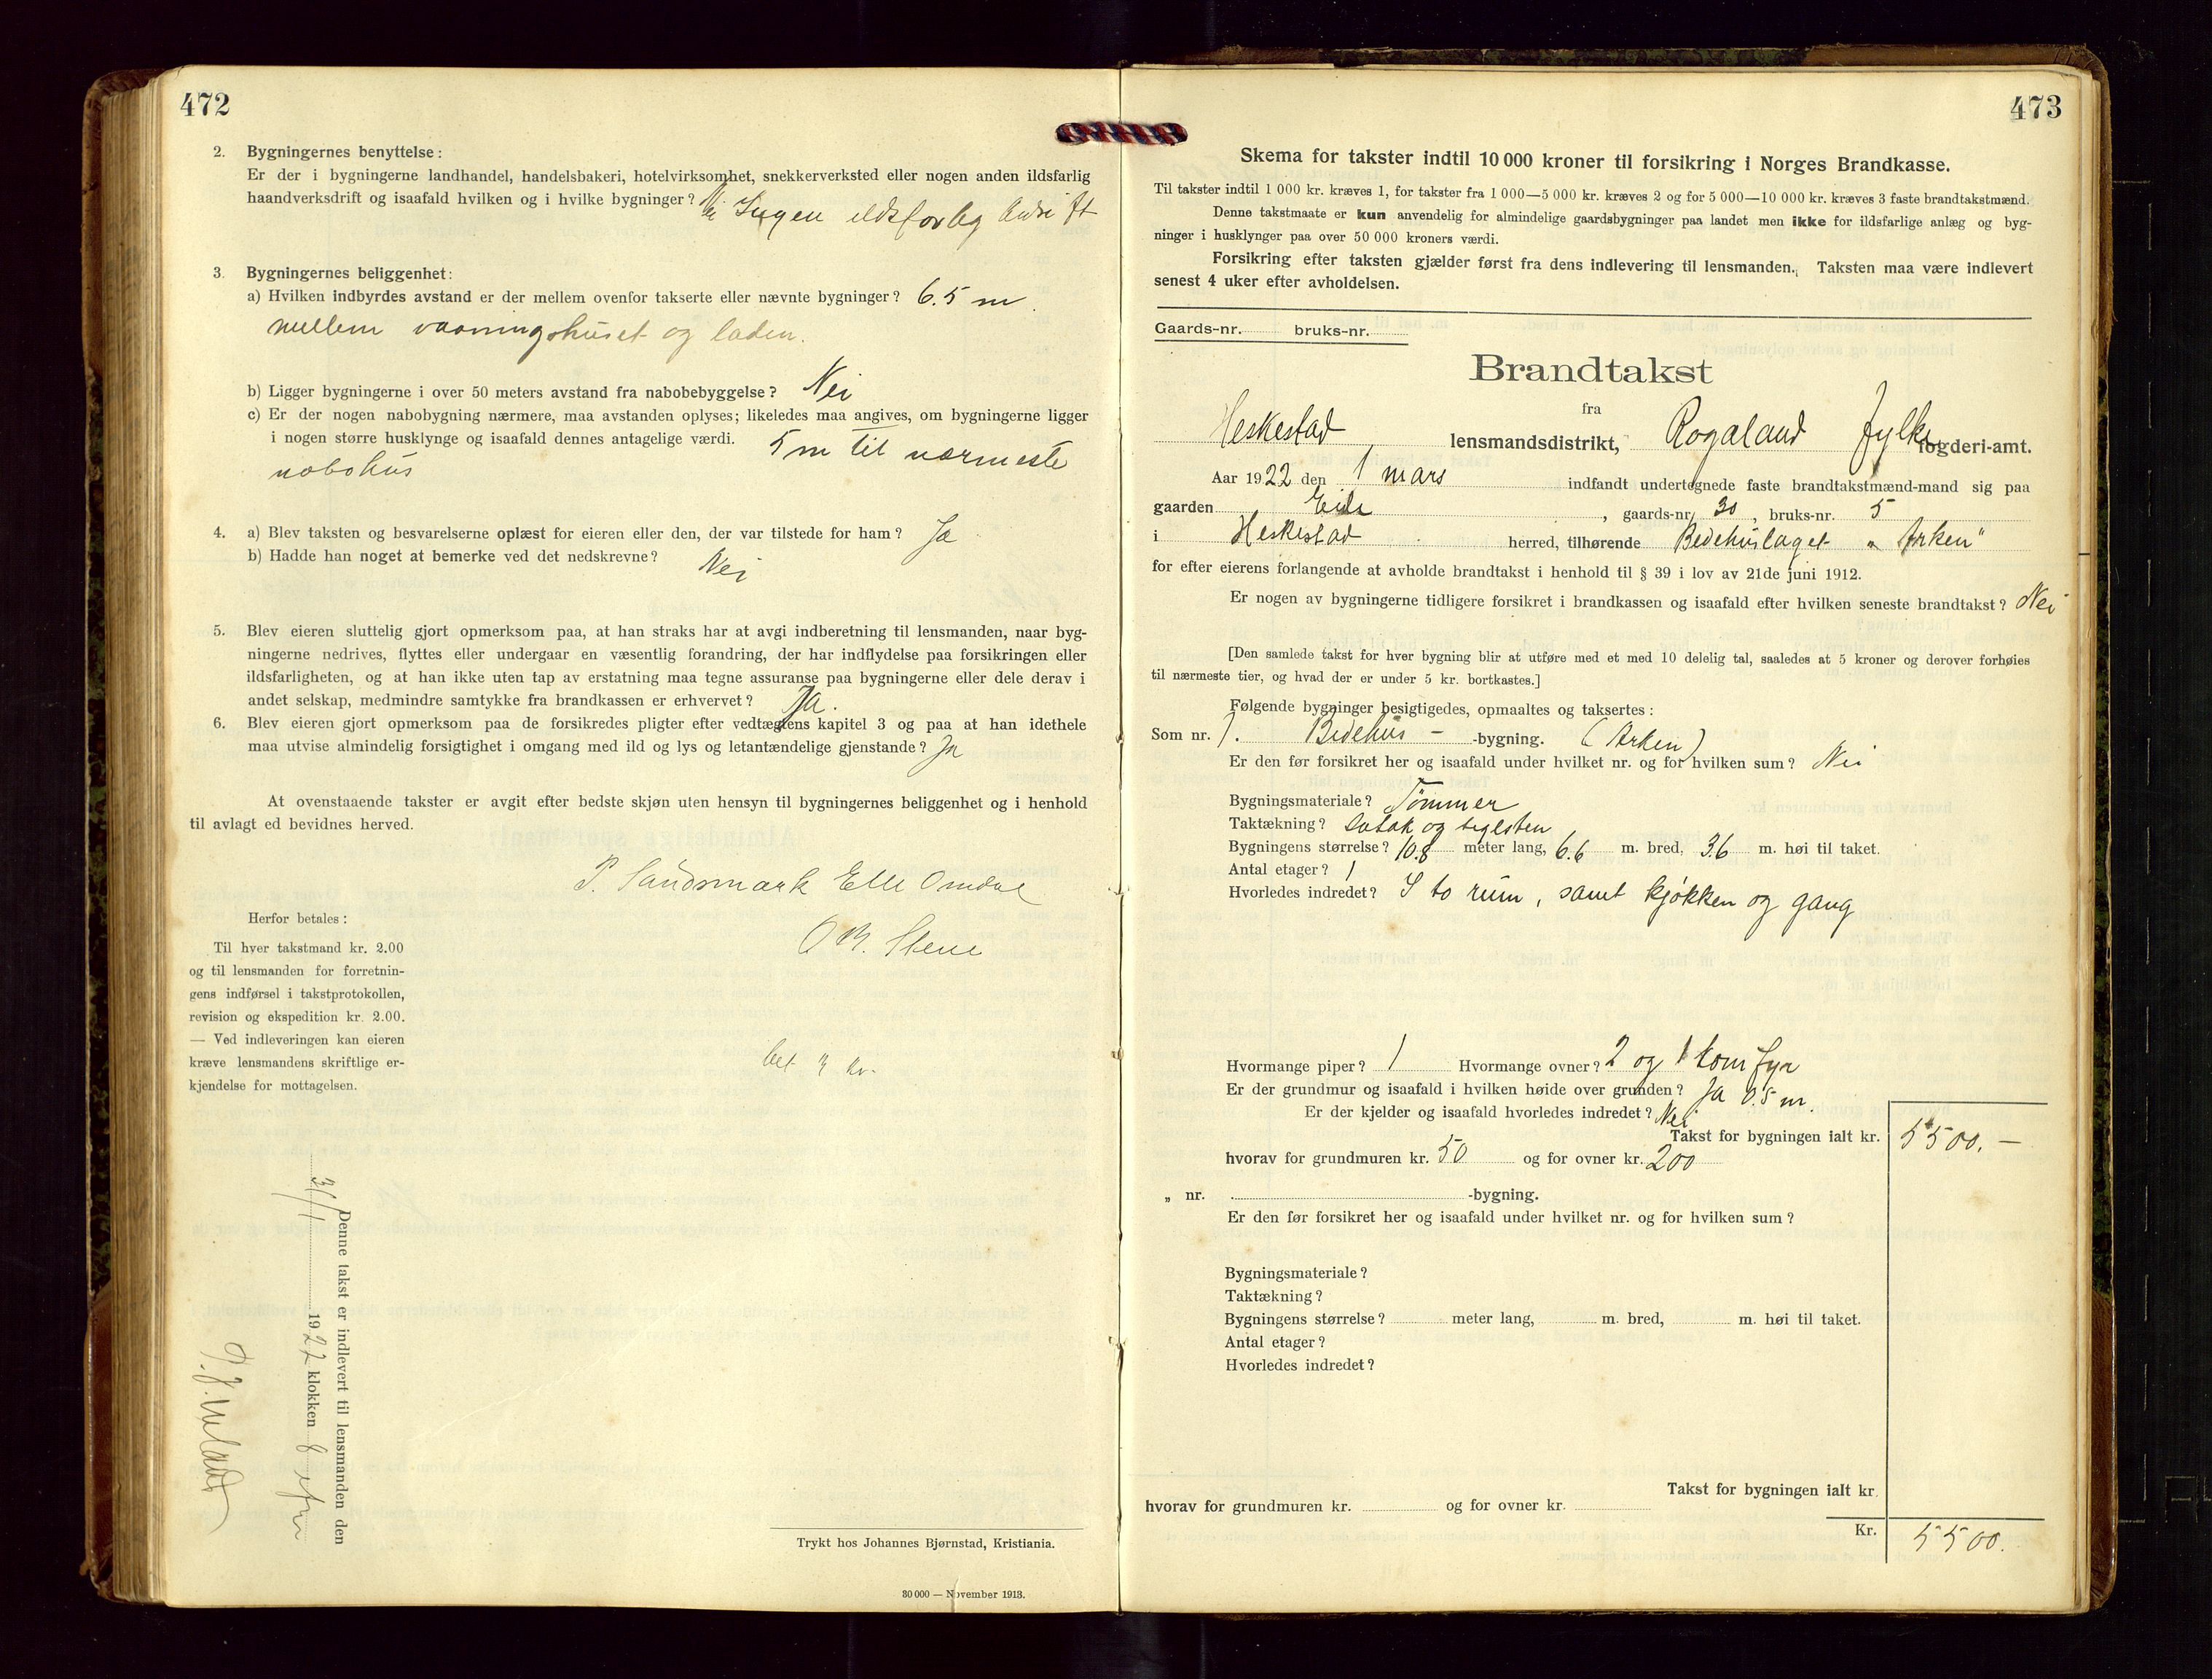 472
2. Bygningernes benyttelse:
Er der i bygningerne landhandel, handelsbakeri, hotelvirksomhet, snekkerverksted eller nogen anden ildsfarlig
haandverksdrift og isaafald hvilken og i hvilke bygninger? Nei Ingen ildsfarlig bedrift
3. Bygningernes beliggenhet:
a) Hvilken indbyrdes avstand er der mellem ovenfor takserte eller nævnte bygninger? 6.5 m
mellem vaaningshuset og laden.
b) Ligger bygningerne i over 50 meters avstand fra nabobebyggelse? Nei
c) Er der nogen nabobygning nærmere, maa avstanden oplyses; likeledes maa angives, om bygningerne ligger
i nogen større husklynge og isaafald dennes antagelige værdi. 5 m til nærmeste
nabohus
4. a) Blev taksten og besvarelserne oplæst for eieren eller den, der var tilstede for ham? Ja
b) Hadde han noget at bemerke ved det nedskrevne? Nei
5. Blev eieren sluttelig gjort opmerksom paa, at han straks har at avgi indberetning til lensmanden, naar byg-
ningerne nedrives, flyttes eller undergaar en væsentlig forandring, der har indflydelse paa forsikringen eller
ildsfarligheten, og at han ikke uten tap av erstatning maa tegne assuranse paa bygningerne eller dele derav i
andet selskap, medmindre samtykke fra brandkassen er erhvervet? Ja.
6. Blev eieren gjort opmerksom paa de forsikredes pligter efter vedtægtens kapitel 3 og paa at han idethele
maa utvise almindelig forsigtighet i omgang med ild og lys og letantændelige gjenstande? Ja
At ovenstaaende takster er avgit efter bedste skjøn uten hensyn til bygningernes beliggenhet og i henhold
til avlagt ed bevidnes herved.
P. Sandsmark Elle Omdal
O M. Stene
Herfor betales:
Til hver takstmand kr. 2.00
og til lensmanden for forretnin-
gens indførsel i takstprotokollen,
revision og ekspedition kr. 2.00.
— Ved indleveringen kan eieren
kræve lensmandens skriftlige er-
kjendelse for mottagelsen.
bet 3 kr.
Denne takst er indlevert til lensmanden den
3/1 1922 klokken 6 efm
Trykt hos Johannes Bjørnstad, Kristiania.
30 000 — November 1913.
473
Skema for takster indtil 10 000 kroner til forsikring i Norges Brandkasse.
Til takster indtil 1 000 kr. kræves 1, for takster fra 1 000—5 000 kr. kræves 2 og for 5 000—10 000 kr. kræves 3 faste brandtakstmænd.
Denne takstmaate er kun anvendelig for almindelige gaardsbygninger paa landet men ikke for ildsfarlige anlæg og byg-
ninger i husklynger paa over 50 000 kroners værdi.
Forsikring efter taksten gjælder først fra dens indlevering til lensmanden. Taksten maa være indlevert
senest 4 uker efter avholdelsen.
Gaards-nr. bruks-nr.
Brandtakst
fra
Heskestad lensmandsdistrikt, Rogaland fylke fogderi-amt.
Aar 1922 den 1 mars indfandt undertegnede faste brandtakstmænd-mand sig paa
gaarden Eide, gaards-nr. 30, bruks-nr. 5
i Heskestad herred, tilhørende Bedehuslaget „Arken"
for efter eierens forlangende at avholde brandtakst i henhold til § 39 i lov av 21de juni 1912.
Er nogen av bygningerne tidligere forsikret i brandkassen og isaafald efter hvilken seneste brandtakst? Nei
[Den samlede takst for hver bygning blir at utføre med et med 10 delelig tal, saaledes at 5 kroner og derover forhøies
til nærmeste tier, og hvad der er under 5 kr. bortkastes.]
Følgende bygninger besigtigedes, opmaaltes og taksertes:
Som nr. 1. Bedehus - -bygning. (Arken)
Er den før forsikret her og isaafald under hvilket nr. og for hvilken sum? Nei
Bygningsmateriale? Tømmer
Taktækning? Sutak og teglsten
Bygningens størrelse? 10.8 meter lang, 6.6 m. bred, 3.6 m. høi til taket.
Antal etager? 1
Hvorledes indredet? I to rum, samt kjøkken og gang
Hvormange piper? 1 Hvormange ovner? 2 og 1 komfyr
Er der grundmur og isaafald i hvilken høide over grunden? Ja 0.5 m.
Er der kjelder og isaafald hvorledes indredet? Nei
Takst for bygningen ialt kr. 5500.—
hvorav for grundmuren kr. 50 og for ovner kr. 200
„ nr. -bygning.
Er den før forsikret her og isaafald under hvilket nr. og for hvilken sum?
Bygningsmateriale?
Taktækning?
Bygningens størrelse? meter lang, m. bred, m. høi til taket.
Antal etager?
Hvorledes indredet?
Takst for bygningen ialt kr.
hvorav for grundmuren kr. og for ovner kr.
Kr. 5500.